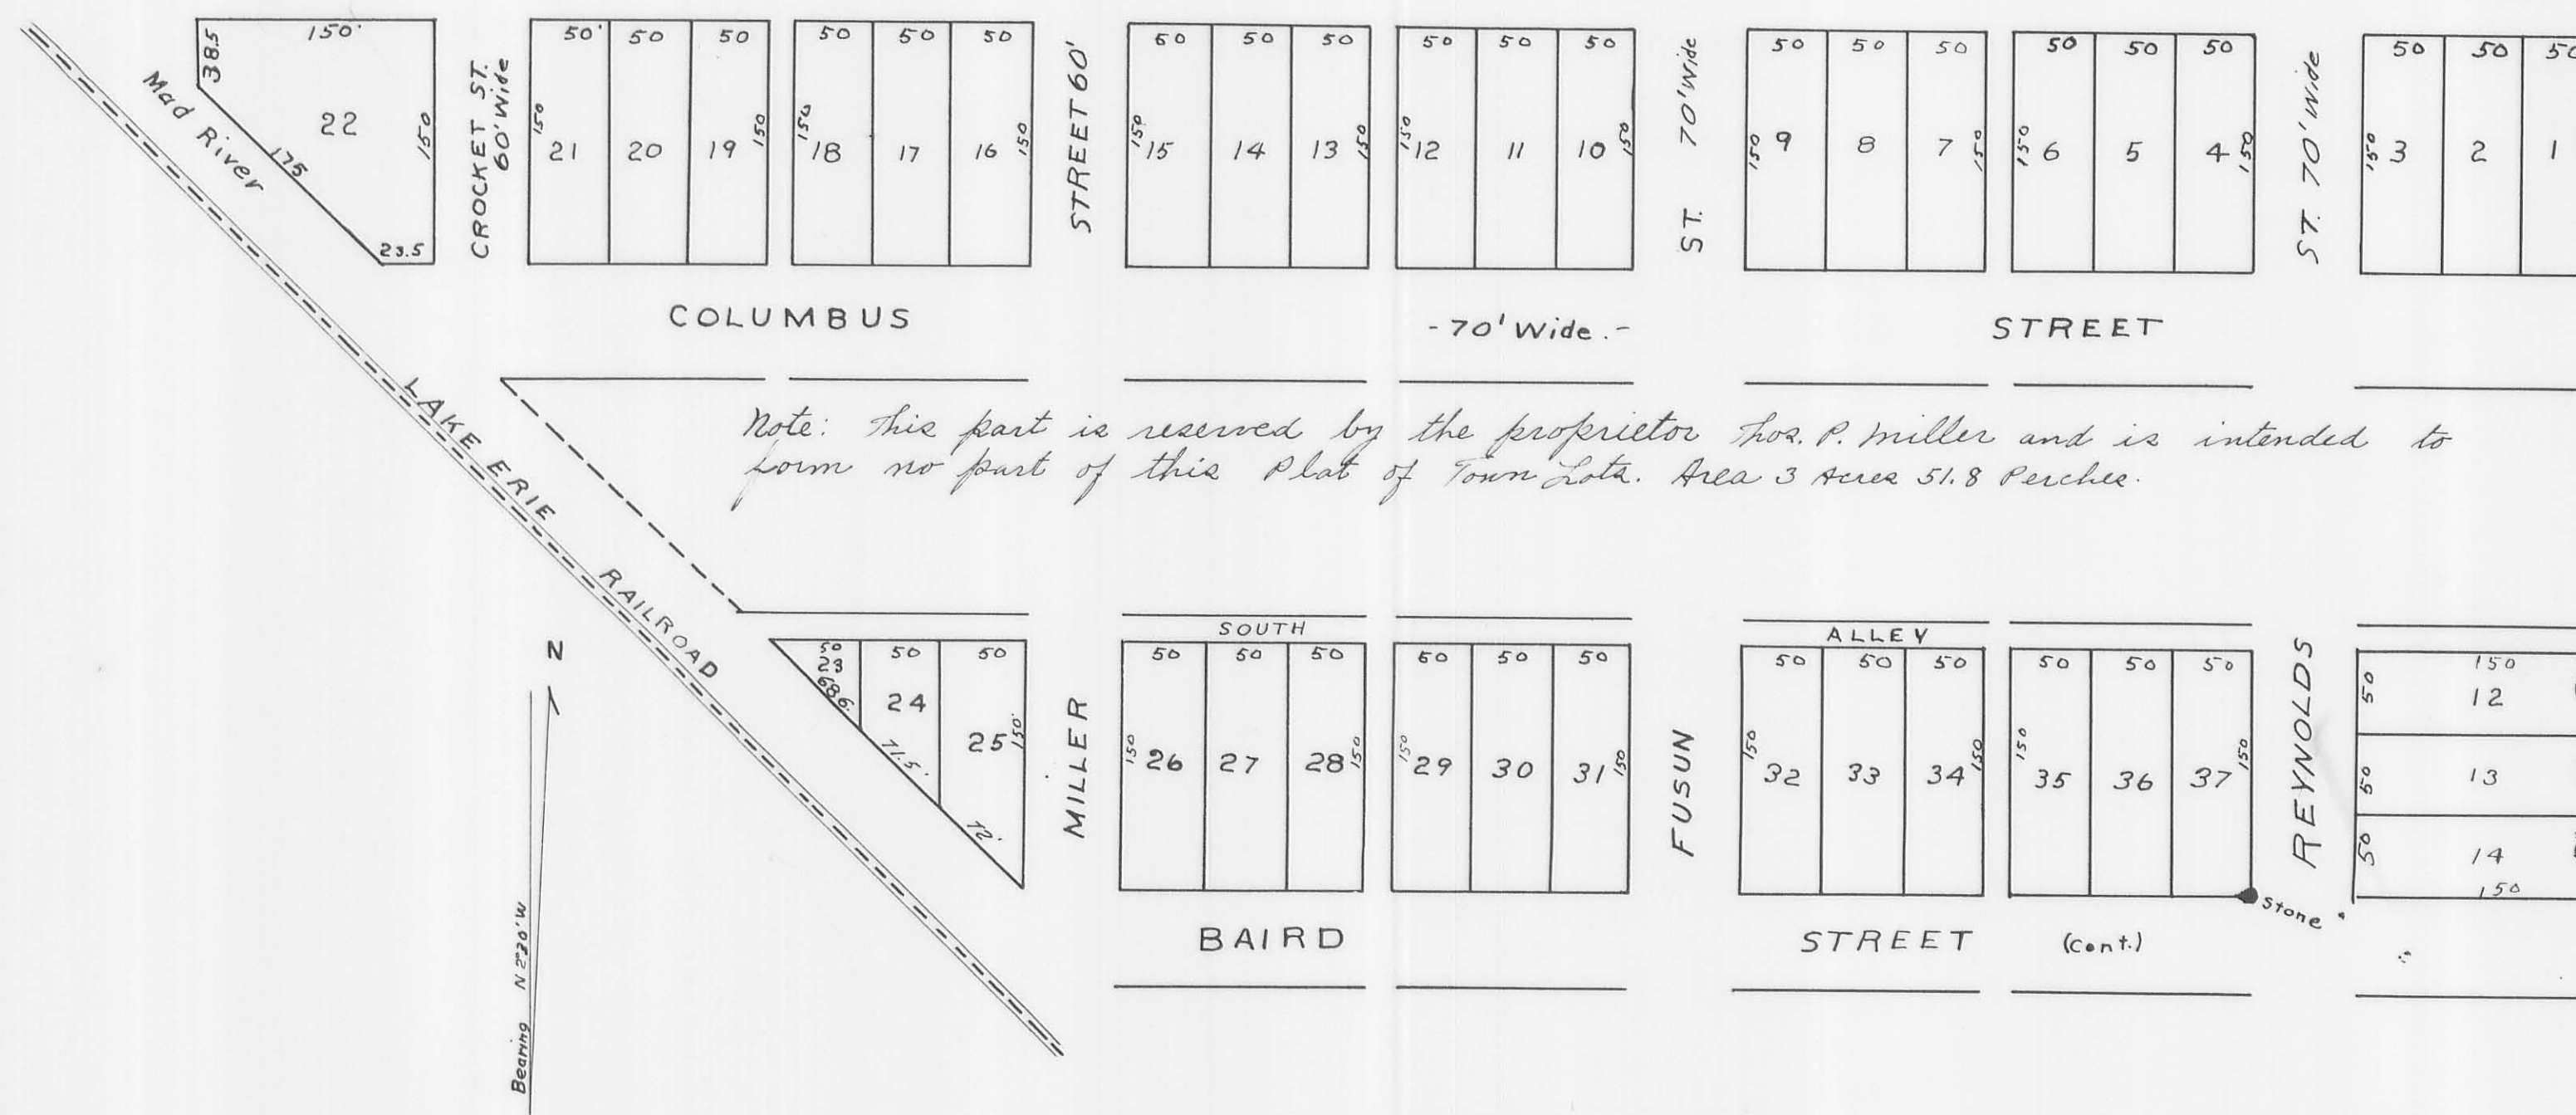 150'
38.5
22
150
175
23.5
Mad River
CROCKET ST.
60' Wide
50' 50 50
150 21 20 19 150
50 50 50
150 18 17 16 150
STREET 60'
60 50 50
150 15 14 13 150
50 50 50
150 12 11 10 150
ST. 70' Wide
50 50 50
150 9 8 7 150
50 50 50
150 6 5 4 150
ST. 70' Wide
50 50 50
150 3 2 1
COLUMBUS -70' Wide.- STREET
Note: This part is reserved by the proprietor Thos. P. Miller and is intended to
form no part of this Plat of Town Lots. Area 3 Acres 51.8 Perches.
LAKE ERIE RAILROAD
SOUTH ALLEY
N
Bearing N 2°30' W
50 50 50
23 24 25 150'
68.6 71.5' 72'
MILLER
50 50 50
150 26 27 28 150
50 50 50
150 29 30 31 150
FUSUN
50 50 50
150 32 33 34 150
50 50 50
150 35 36 37 150
REYNOLDS
150
50 12
50 13
50 14
150
Stone
BAIRD STREET (Cont.)